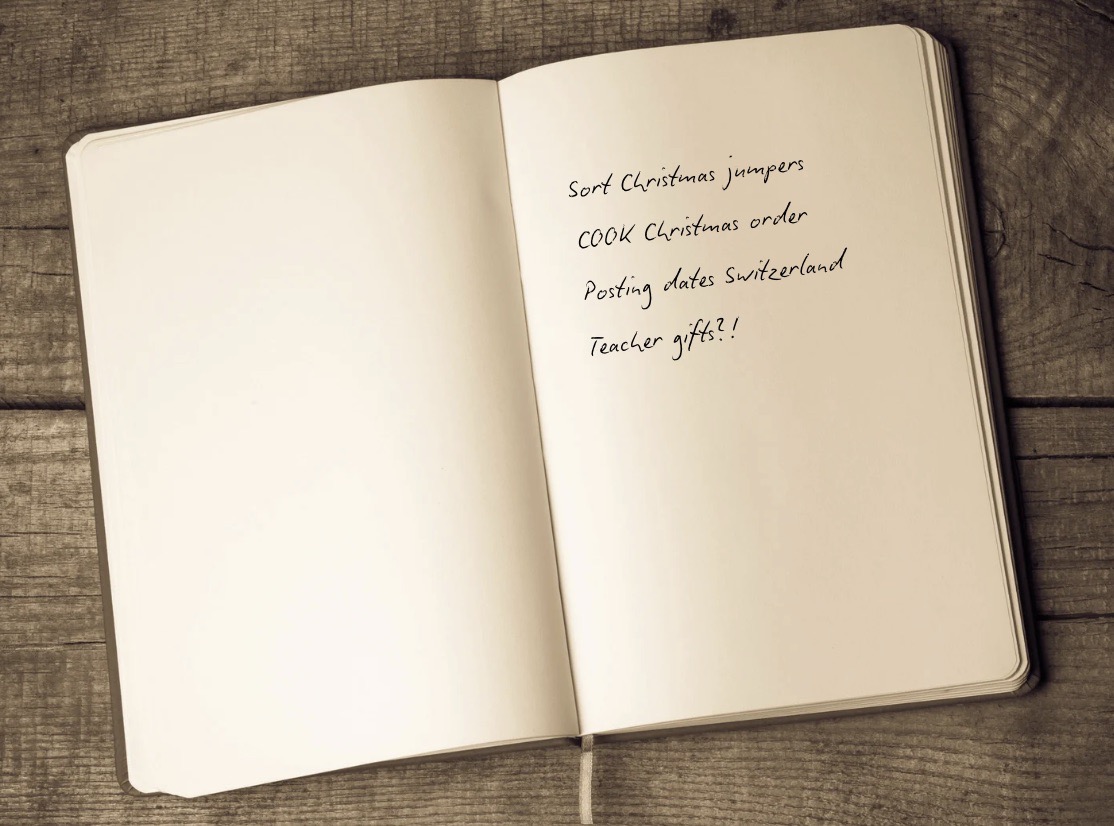 Sort Christmas jumpers
COOK Christmas order
Posting dates Switzerland
Teacher gifts?!